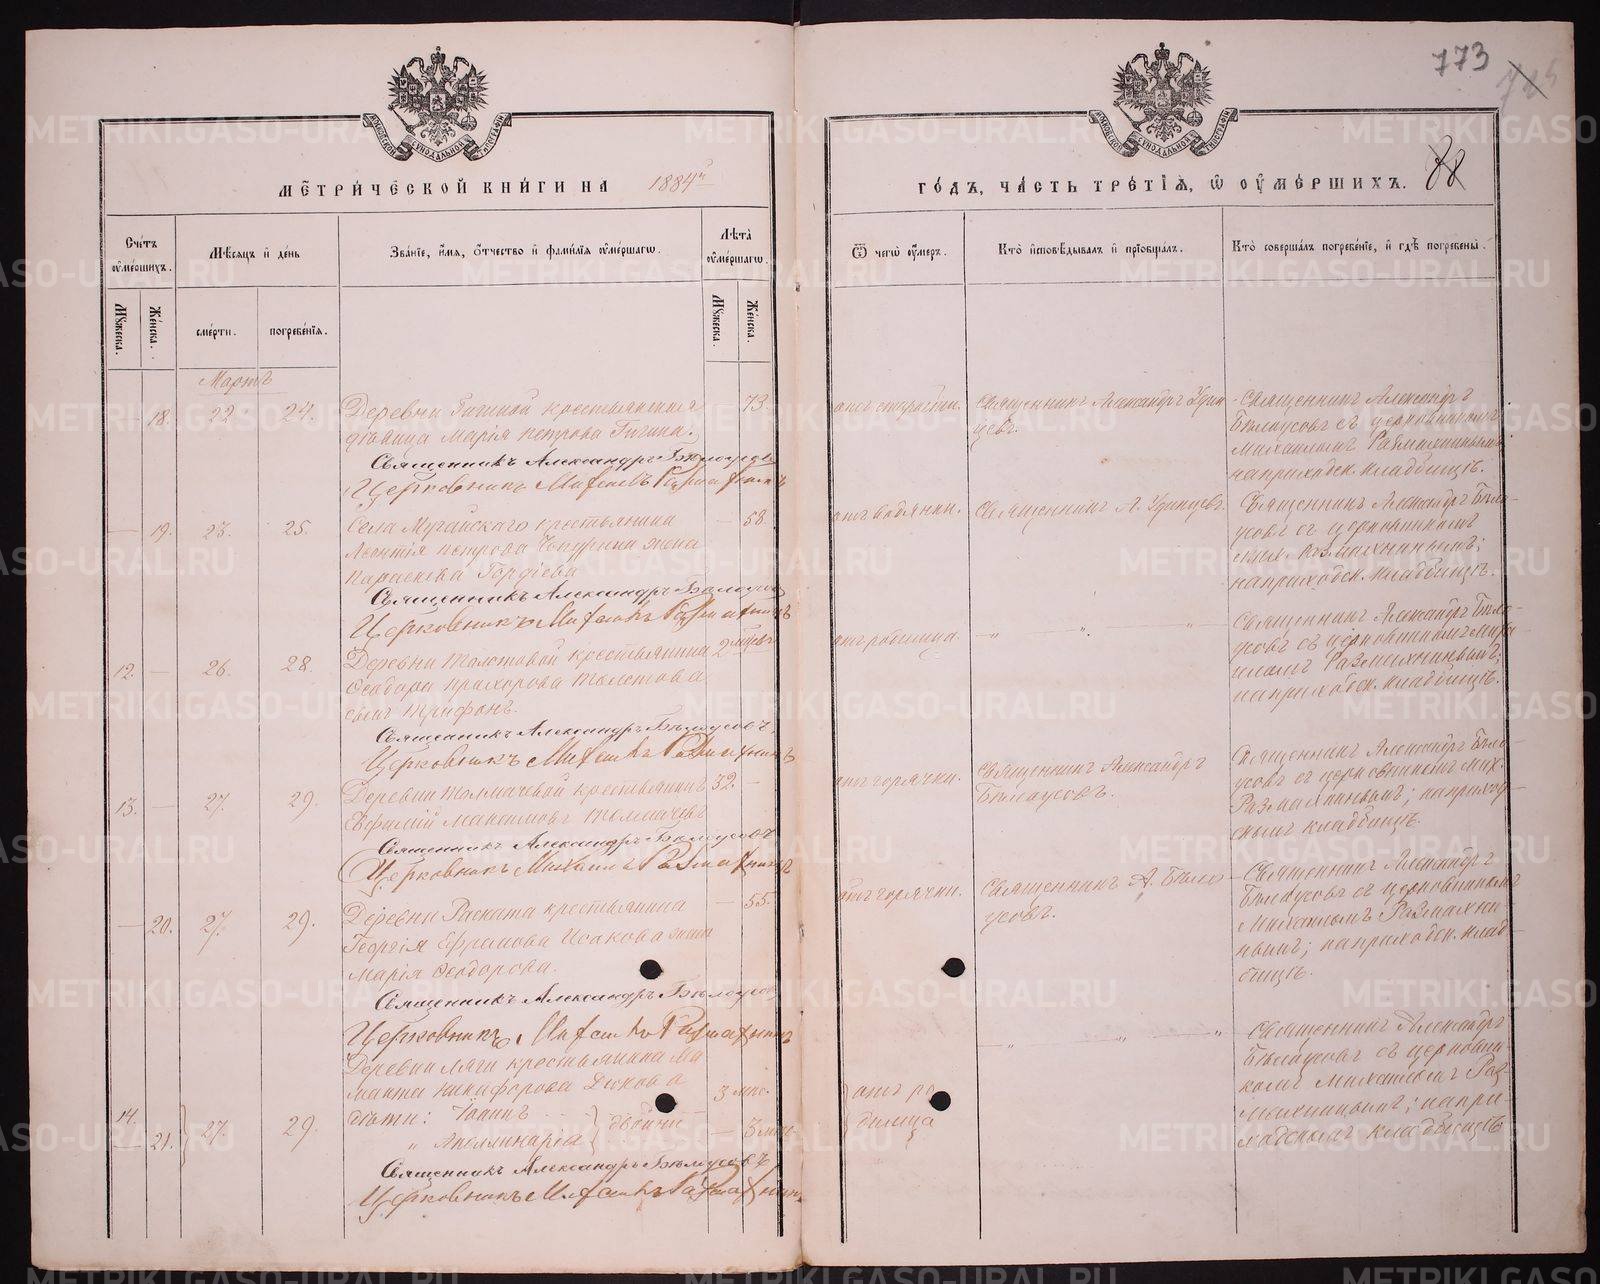 773
МЕТРИЧЕСКОЙ КНИГИ НА 1884й
ГОДЪ, ЧАСТЬ ТРЕТІѦ, Ѡ ОУМЕРШИХЪ. 88
Счетъ оумершихъ.
Мѣсѧцъ и день
Званіе, имѧ, отчество и фамиліѧ оумершагѡ.
Лѣта оумершагѡ.
Ѿ чегѡ оумеръ.
Кто исповѣдывалъ и пріобщалъ.
Кто совершалъ погребеніе, и гдѣ погребены.
Мужеска.
Женска.
смерти.
погребеніѧ.
Мужеска.
Женска.
Мартъ
18. 22. 24. Деревни крестьянская 73.
дѣвица Марія Петрова
Священникъ Александръ Бѣлоусовъ
Церковникъ Михаилъ Размахнинъ
отъ старости.
Священникъ Александръ Удинцевъ.
Священникъ Александръ
Бѣлоусовъ съ церковникомъ
Михаиломъ Размахнинымъ
на приходск. кладбищѣ.
— 19. 23. 25. Села Мугайскаго крестьянина — 58.
Леонтія Петрова жена
Параскева Гордѣева
Священникъ Александръ Бѣлоусовъ
Церковникъ Михаилъ Размахнинъ
отъ водянки.
Священникъ А. Удинцевъ.
Священникъ Александръ Бѣло-
усовъ съ церковникомъ
Размахнинымъ;
на приходск. кладбищѣ.
12. — 26. 28. Деревни Толстовой крестьянина 2 мѣсяц.
Ѳеодора Прохорова Толстова
сынъ Трифонъ.
Священникъ Александръ Бѣлоусовъ
Церковникъ Михаилъ Размахнинъ
отъ родимца. —„ „ „
Священникъ Александръ Бѣло-
усовъ съ церковникомъ Миха-
иломъ Размахнинымъ;
на приходск. кладбищѣ.
13. — 27. 29. Деревни Толмачевой крестьянинъ 32. —
Евфимій Максимовъ Толмачевъ
Священникъ Александръ Бѣлоусовъ
Церковникъ Михаилъ Размахнинъ
отъ горячки.
Священникъ Александръ
Бѣлоусовъ.
Священникъ Александръ Бѣло-
усовъ съ церковникомъ Мих.
Размахнинымъ; на приход-
скомъ кладбищѣ.
— 20. 27. 29. Деревни Раската крестьянина — 55.
Георгія Ефремова Исакова жена
Марія Ѳеодорова.
Священникъ Александръ Бѣлоусовъ
Церковникъ Михаилъ Размахнинъ
отъ горячки.
Священникъ А. Бѣло-
усовъ.
Священникъ Александръ
Бѣлоусовъ съ церковникомъ
Михаиломъ Размахни-
нымъ; на приходск. клад-
бищѣ.
Деревни Ляги крестьянина Ма-
манта Никифорова Дюкова
14. дѣти: Іоаннъ 3 мѣс.
21. 27. 29. „ Аполлинарія двойни — 3 мѣс.
Священникъ Александръ Бѣлоусовъ
Церковникъ Михаилъ Размахнинъ
отъ ро-
димца
—„ „ „
Священникъ Александръ
Бѣлоусовъ съ церковни-
комъ Михаиломъ Раз-
махнинымъ; на при-
ходскомъ кладбищѣ
METRIKI.GASO-URAL.RU